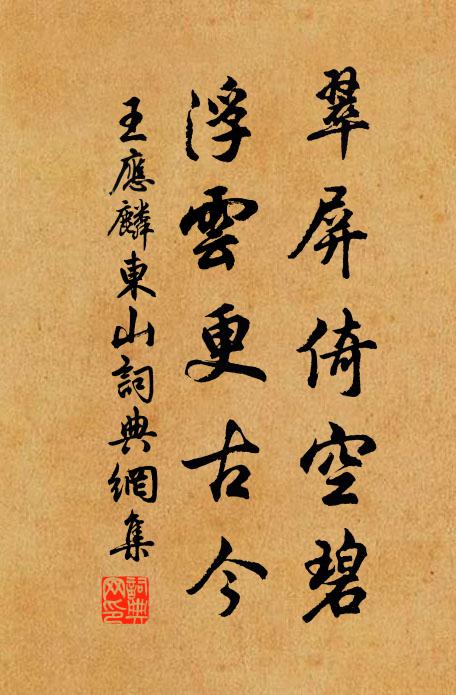 翠屏倚空碧
浮雲更古今
王應麟東山詞典網集
詞典網印